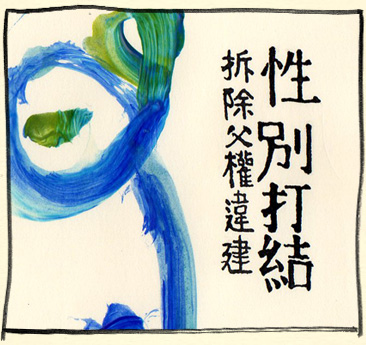 性別打結
拆除父權違建